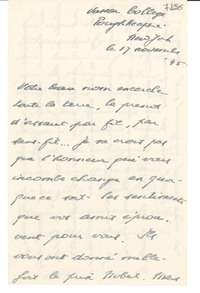 Vassar College
Poughkeepsie
New York
le 17 novembre
45
Votre beau nom encercle
toute la terre, la presse
fil par fil, par
sans-fil... je ne crois pas
que l'honneur qui vous
incombe change en quoi
que ce soit les sentiments
que vos amis éprou-
vent pour vous. Ils
vous ont donné mille
fois le prix Nobel. Mais